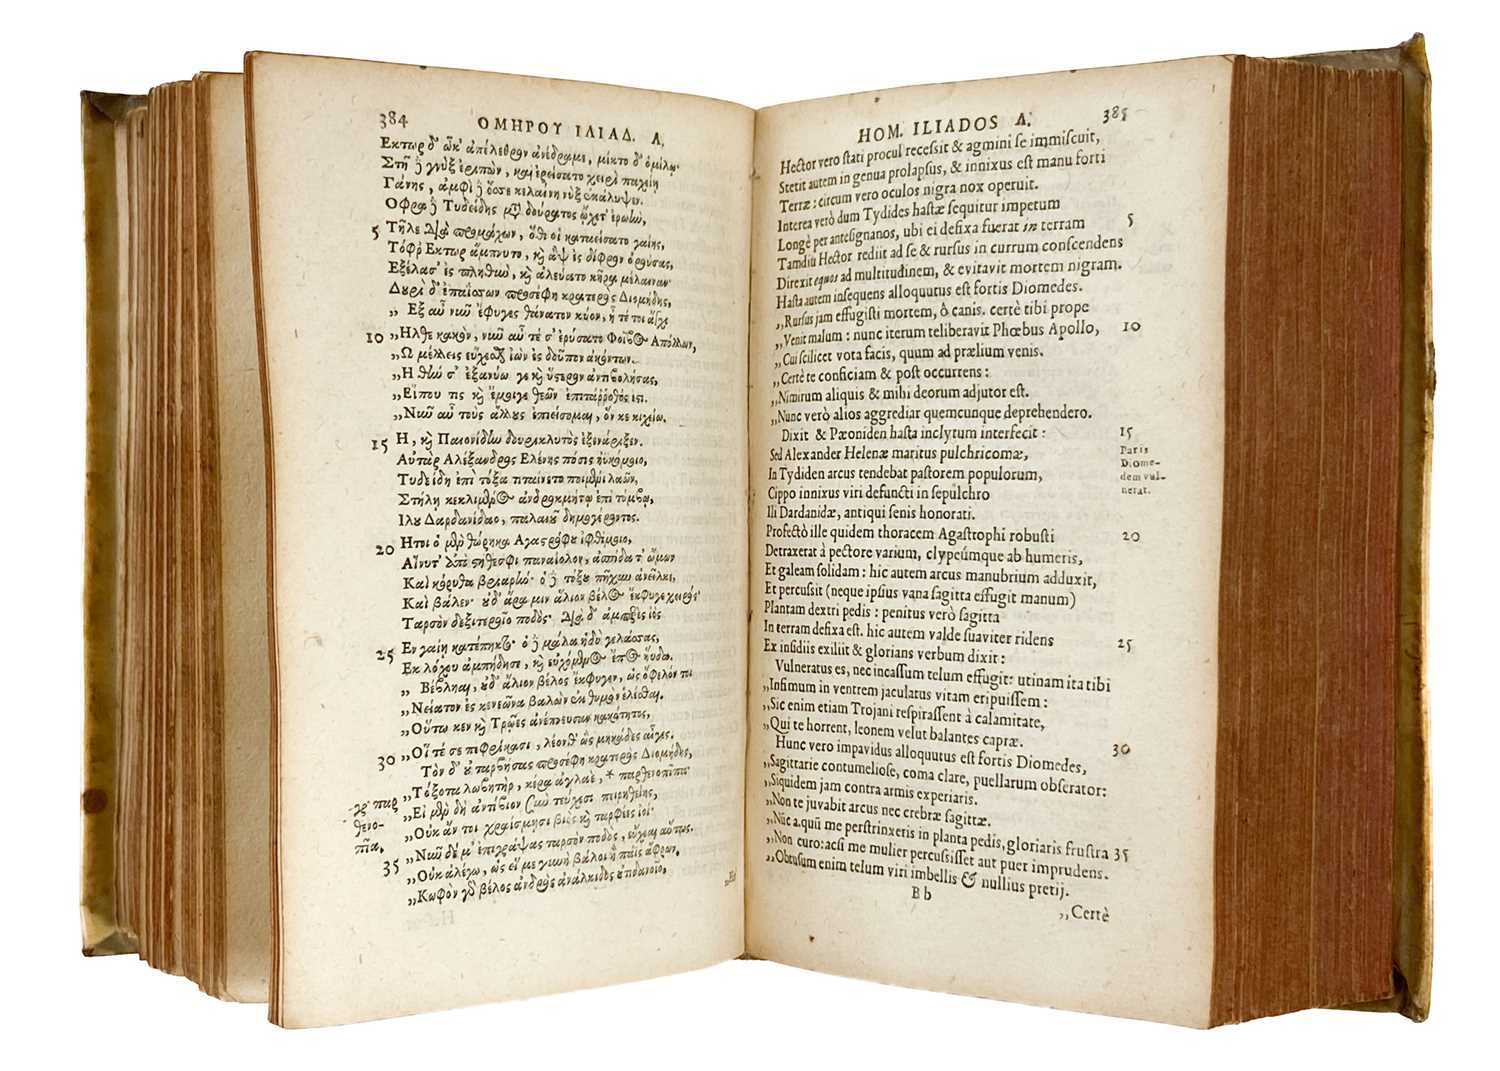 384 ΟΜΗΡΟΥ ΙΛΙΑΔ. Λ.
Εκτωρ δ' ὦκ' ἀπέλεθρον ἀνέδραμε, μίκτο δ' ὁμίλῳ·
Στῆ ἢ γνὺξ ἐριπὼν, καὶ ἐρείσατο χειρὶ παχείῃ
Γαίης, ἀμφὶ ἢ ὄσσε κελαινὴ νὺξ ἐκάλυψεν.
Οφρα ἢ Τυδείδης μτ̀ δούρατος ᾤχετ' ἐρωὴν,
5 Τῆλε διὰ προμάχων, ὅθι οἱ καταείσατο γαίης,
Τόφρ' Εκτωρ ἄμπνυτο, κỳ ἂψ ἐς δίφρον ὀρούσας,
Εξέλασ' ἐς πληθὺν, κỳ ἀλεύατο κῆρα μέλαιναν·
Δουρὶ δ' ἐπαΐσσων προσέφη κρατερὸς Διομήδης,
„ Εξ αὖ νῦν ἔφυγες θάνατον κύον, ἦ τέ τοι ἄγχι
10 „Ηλθε κακὸν, νῦν αὖ τέ σ' ἐρύσατο Φοῖβος Απόλλων,
„Ω μέλλεις εὔχεσθ ἰὼν ἐς δοῦπον ἀκόντων.
„Η θήν σ' ἐξανύω γε κỳ ὕστερον ἀντιβολήσας,
„Εἴπου τις κỳ ἔμοιγε θεῶν ἐπιτάῤῥοθός ἐςι.
„Νῦν αὖ τοὺς ἄλλους ἐπιείσομαι, ὅν κε κιχείω.
15 Η, κỳ Παιονίδην δουρικλυτὸς ἐξενάριξεν.
Αὐτὰρ Αλέξανδρος Ελένης πόσις ἠϋκόμοιο,
Τυδείδῃ ἐπὶ τόξα τιταίνετο ποιμένι λαῶν,
Στήλῃ κεκλιμένος ἀνδροκμήτῳ ἐπὶ τύμβῳ,
Ιλου Δαρδανίδαο, παλαιοῦ δημογέροντος.
20 Ητοι ὁ μὲν θώρηκα Αγαςρόφου ἰφθίμοιο
Αἴνυτ' ἀπὸ ςήθεσφι παναίολον, ἀσπίδα τ' ὤμων
Καὶ κόρυθα βριαρίω· ὁ ἢ τόξου πῆχυν ἀνεῖλκε,
Καὶ βάλεν· οὐδ' ἄρα μιν ἅλιον βέλος ἔκφυγε χειρὸς·
Ταρσὸν δεξιτεροῖο ποδός· διὰ δ' ἀμπερὲς ἰὸς
25 Εν γαίῃ κατέπηκτο· ὁ ἢ μάλα ἡδὺ γελάσσας,
Εκ λόχου ἀμπήδησε, κỳ εὐχόμενος ἔπος ηὔδα.
„ Βέβληαι, οὐδ' ἅλιον βέλος ἔκφυγεν, ὡς ὄφελόν τοι
„Νείατον ἐς κενεῶνα βαλὼν ἐκ θυμὸν ἑλέσθαι.
„Οὕτω κεν κỳ Τρῶες ἀνέπνευσαν κακότητος,
30 „Οἵ τέ σε πεφρίκασι, λέονθ' ὡς μηκάδες αἶγες.
Τὸν δ' οὐ ταρβήσας προσέφη κρατερὸς Διομήδης,
„Τόξοτα λωβητὴρ, κέρα ἀγλαὲ, * παρθενοπῖπα·
γρ' παρ
θενο-
πῖπα,
„Εἰ μὲν δὴ ἀντίβιον σὺν τεύχεσι πειρηθείης,
„Οὐκ ἄν τοι χραίσμησι βιὸς κỳ ταρφέες ἰοί·
35 „Νῦν δέ μ' ἐπιγράψας ταρσὸν ποδὸς, εὔχεαι αὔτως.
„Οὐκ ἀλέγω, ὡς εἴ με γυνὴ βάλοι ἢ πάϊς ἄφρων,
„Κωφὸν γὸ βέλος ἀνδρὸς ἀνάλκιδος οὐτιδανοῖο,
HOM. ILIADOS Λ. 385
Hector vero stati procul recessit & agmini se immiscuit,
Stetit autem in genua prolapsus, & innixus est manu forti
Terræ : circum vero oculos nigra nox operuit.
Interea verò dum Tydides hastæ sequitur impetum
Longè per antesignanos, ubi ei defixa fuerat in terram 5
Tamdiu Hector rediit ad se & rursus in currum conscendens
Direxit equos ad multitudinem, & evitavit mortem nigram.
Hasta autem insequens alloquutus est fortis Diomedes.
„Rursus jam effugisti mortem, ô canis. certè tibi prope
„Venit malum : nunc iterum te liberavit Phœbus Apollo, 10
„Cui scilicet vota facis, quum ad prælium venis.
„Certè te conficiam & post occurrens :
„Nimirum aliquis & mihi deorum adjutor est.
„Nunc verò alios aggrediar quemcunque deprehendero.
Dixit & Pæoniden hasta inclytum interfecit : 15
Sed Alexander Helenæ maritus pulchricomæ,
In Tydiden arcus tendebat pastorem populorum,
Paris
Diome-
dem vul-
nerat.
Cippo innixus viri defuncti in sepulchro
Ili Dardanidæ, antiqui senis honorati.
Profectò ille quidem thoracem Agastrophi robusti 20
Detraxerat à pectore varium, clypeúmque ab humeris,
Et galeam solidam : hic autem arcus manubrium adduxit,
Et percussit (neque ipsius vana sagitta effugit manum)
Plantam dextri pedis : penitus verò sagitta
In terram defixa est. hic autem valde suaviter ridens 25
Ex insidiis exiliit & glorians verbum dixit :
Vulneratus es, nec incassum telum effugit: utinam ita tibi
„Infimum in ventrem jaculatus vitam eripuissem :
„Sic enim etiam Trojani respirassent à calamitate,
„Qui te horrent, leonem velut balantes capræ. 30
Hunc vero impavidus alloquutus est fortis Diomedes,
„Sagittarie contumeliose, coma clare, puellarum observator:
„Siquidem jam contra armis experiaris.
„Non te juvabit arcus nec crebræ sagittæ.
„Nūc a. quū me perstrinxeris in planta pedis, gloriaris frustra 35
„Non curo: acsi me mulier percussisset aut puer imprudens.
„Obtusum enim telum viri imbellis & nullius pretij.
B b
„Certè